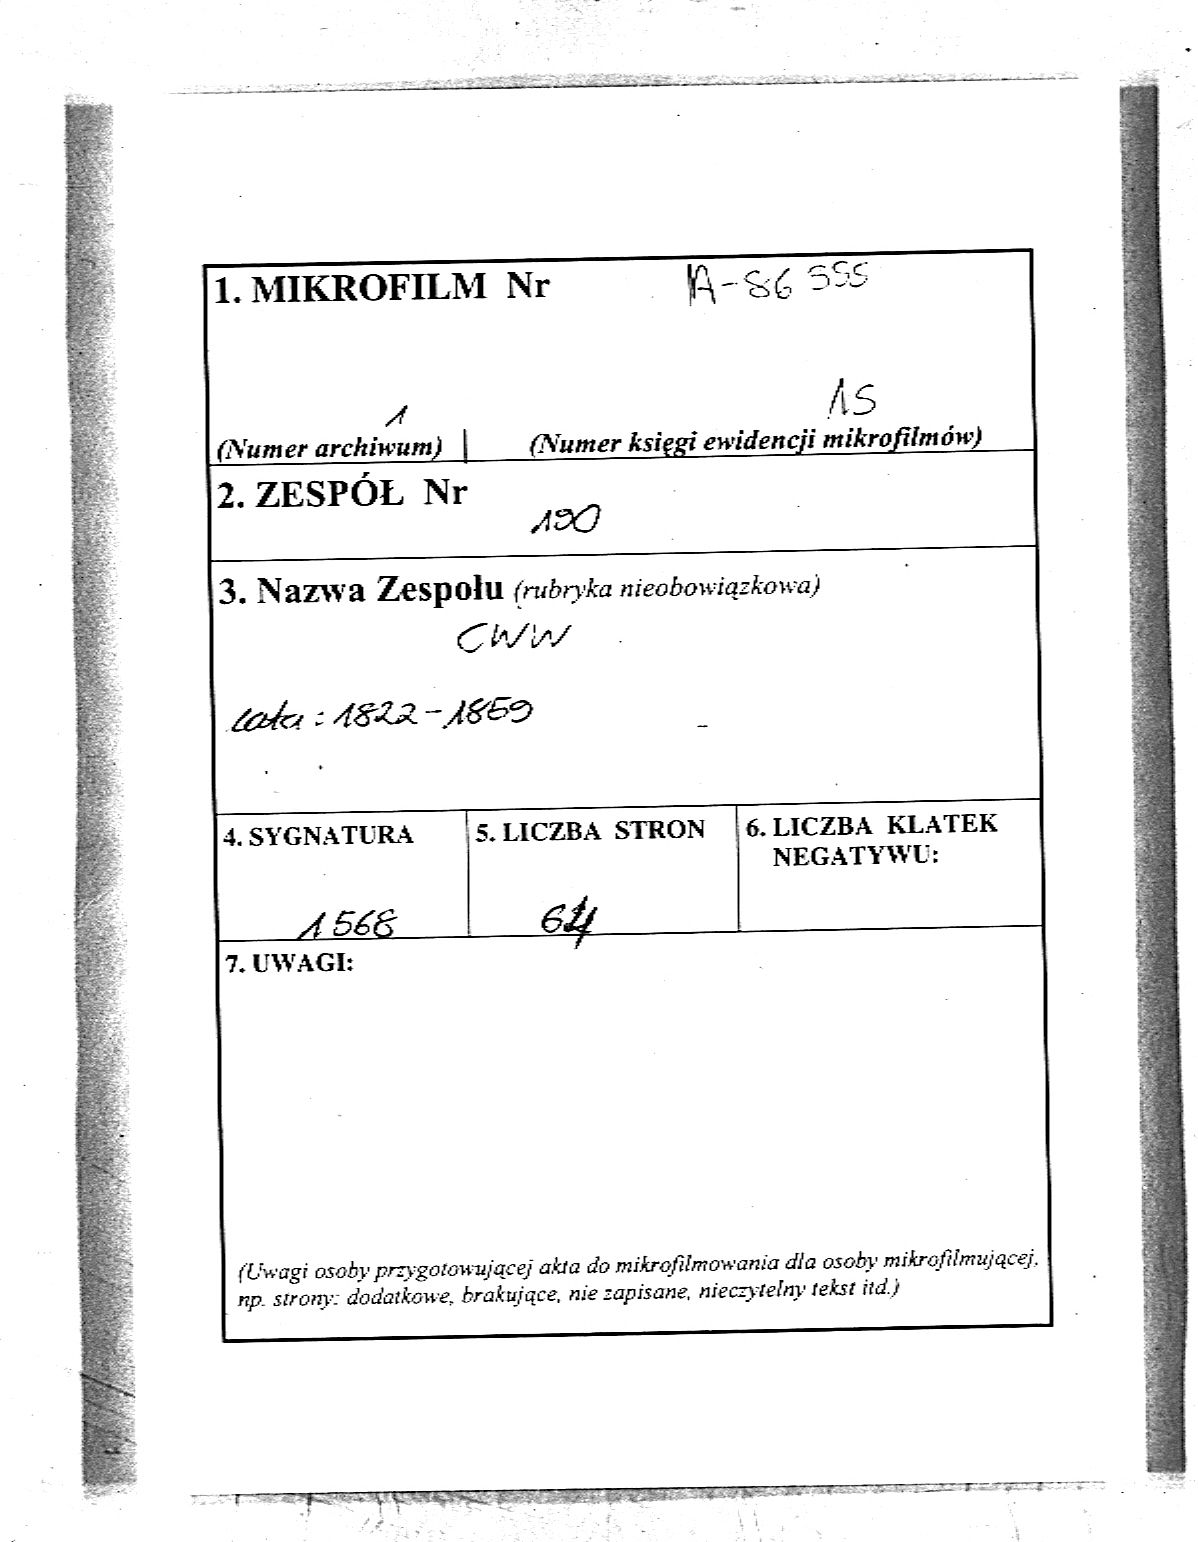 1. MIKROFILM Nr A-86 555
1 15
(Numer archiwum) | (Numer księgi ewidencji mikrofilmów)
2. ZESPÓŁ Nr
190
3. Nazwa Zespołu (rubryka nieobowiązkowa)
CWW
Lata: 1822-1859
4. SYGNATURA
1568
5. LICZBA STRON
6. LICZBA KLATEK
NEGATYWU:
7. UWAGI:
(Uwagi osoby przygotowującej akta do mikrofilmowania dla osoby mikrofilmującej,
np. strony: dodatkowe, brakujące, nie zapisane, nieczytelny tekst itd.)